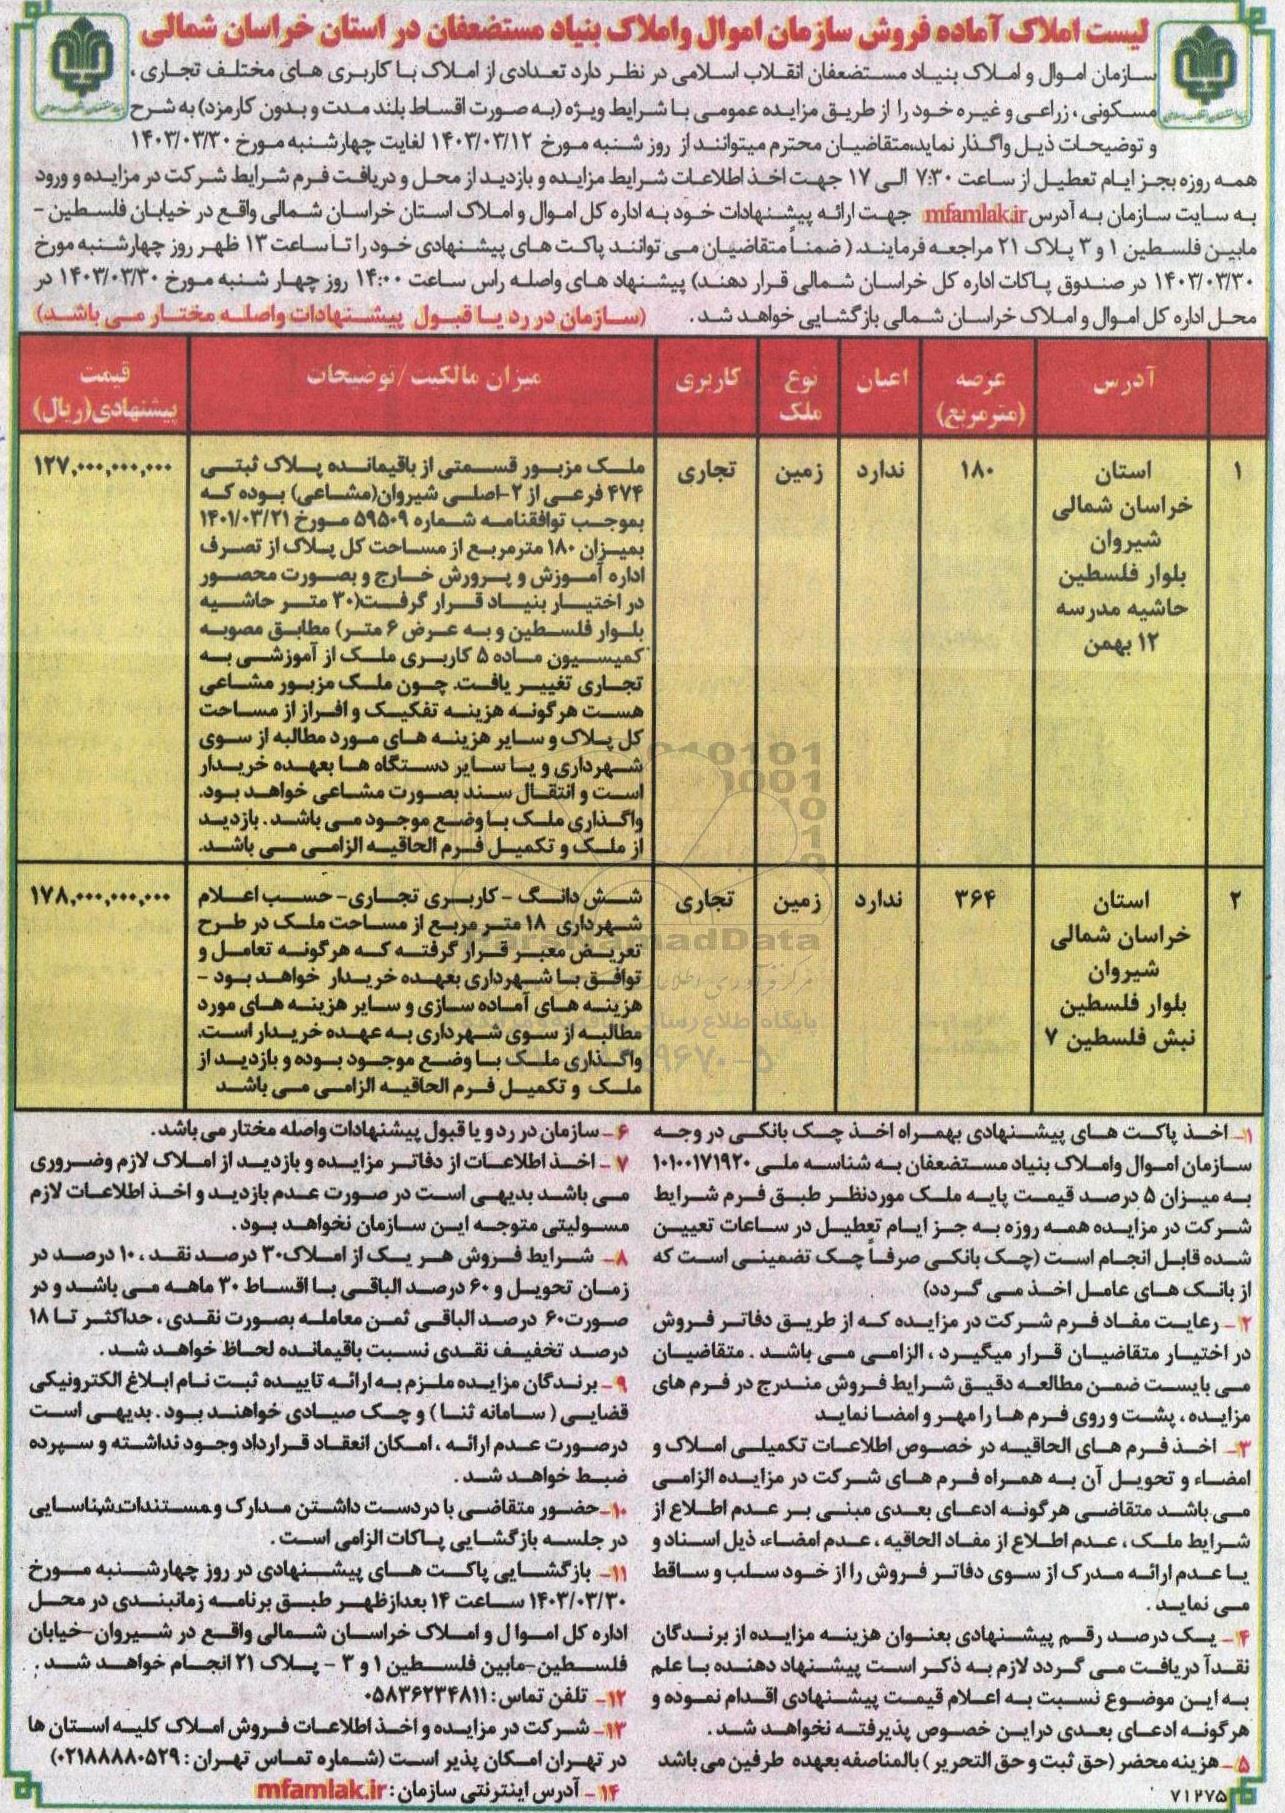 لیست املاک آماده فروش سازمان اموال واملاک بنیاد مستضعفان در استان خراسان شمالی
سازمان اموال و املاک بنیاد مستضعفان انقلاب اسلامی در نظر دارد تعدادی از املاک با کاربری های مختلف تجاری ،
مسکونی ، زراعی و غیره خود را از طریق مزایده عمومی با شرایط ویژه (به صورت اقساط بلند مدت و بدون کارمزد) به شرح
و توضیحات ذیل واگذار نماید،متقاضیان محترم میتوانند از روز شنبه مورخ ۱۴۰۳/۰۳/۱۲ لغایت چهارشنبه مورخ ۱۴۰۳/۰۳/۳۰
همه روزه بجز ایام تعطیل از ساعت ۷:۳۰ الی ۱۷ جهت اخذ اطلاعات شرایط مزایده و بازدید از محل و دریافت فرم شرایط شرکت در مزایده و ورود
به سایت سازمان به آدرس mfamlak.ir جهت ارائه پیشنهادات خود به اداره کل اموال و املاک استان خراسان شمالی واقع در خیابان فلسطین -
مابین فلسطین ۱ و ۳ پلاک ۲۱ مراجعه فرمایند. ( ضمناً متقاضیان می توانند پاکت های پیشنهادی خود را تا ساعت ۱۳ ظهر روز چهارشنبه مورخ
۱۴۰۳/۰۳/۳۰ در صندوق پاکات اداره کل خراسان شمالی قرار دهند) پیشنهاد های واصله راس ساعت ۱۴:۰۰ روز چهار شنبه مورخ ۱۴۰۳/۰۳/۳۰ در
محل اداره کل اموال و املاک خراسان شمالی بازگشایی خواهد شد . (سازمان در رد یا قبول پیشنهادات واصله مختار می باشد)
آدرس
عرصه (مترمربع)
اعیان
نوع ملک
کاربری
میزان مالکیت/توضیحات
قیمت پیشنهادی(ریال)
۱
استان
خراسان شمالی
شیروان
بلوار فلسطین
حاشیه مدرسه
۱۲ بهمن
۱۸۰
ندارد
زمین
تجاری
ملک مزبور قسمتی از باقیمانده پلاک ثبتی
۴۷۴ فرعی از ۲-اصلی شیروان(مشاعی) بوده که
بموجب توافقنامه شماره ۵۹۵۰۹ مورخ ۱۴۰۱/۰۳/۲۱
بمیزان ۱۸۰ مترمربع از مساحت کل پلاک از تصرف
اداره آموزش و پرورش خارج و بصورت محصور
در اختیار بنیاد قرار گرفت(۳۰ متر حاشیه
بلوار فلسطین و به عرض ۶ متر) مطابق مصوبه
کمیسیون ماده ۵ کاربری ملک از آموزشی به
تجاری تغییر یافت. چون ملک مزبور مشاعی
هست هرگونه هزینه تفکیک و افراز از مساحت
کل پلاک و سایر هزینه های مورد مطالبه از سوی
شهرداری و یا سایر دستگاه ها بعهده خریدار
است و انتقال سند بصورت مشاعی خواهد بود.
واگذاری ملک با وضع موجود می باشد . بازدید
از ملک و تکمیل فرم الحاقیه الزامی می باشد.
۱۲۷,۰۰۰,۰۰۰,۰۰۰
۲
استان
خراسان شمالی
شیروان
بلوار فلسطین
نبش فلسطین ۷
۳۶۴
ندارد
زمین
تجاری
شش دانگ - کاربری تجاری- حسب اعلام
شهرداری ۱۸ متر مربع از مساحت ملک در طرح
تعریض معبر قرار گرفته که هرگونه تعامل و
توافق با شهرداری بعهده خریدار خواهد بود -
هزینه های آماده سازی و سایر هزینه های مورد
مطالبه از سوی شهرداری به عهده خریدار است.
واگذاری ملک با وضع موجود بوده و بازدید از
ملک و تکمیل فرم الحاقیه الزامی می باشد
۱۷۸,۰۰۰,۰۰۰,۰۰۰
ParsNamadData
۱- اخذ پاکت های پیشنهادی بهمراه اخذ چک بانکی در وجه
سازمان اموال واملاک بنیاد مستضعفان به شناسه ملی ۱۰۱۰۰۱۷۱۹۲۰
به میزان ۵ درصد قیمت پایه ملک موردنظر طبق فرم شرایط
شرکت در مزایده همه روزه به جز ایام تعطیل در ساعات تعیین
شده قابل انجام است (چک بانکی صرفاً چک تضمینی است که
از بانک های عامل اخذ می گردد)
۲- رعایت مفاد فرم شرکت در مزایده که از طریق دفاتر فروش
در اختیار متقاضیان قرار میگیرد ، الزامی می باشد . متقاضیان
می بایست ضمن مطالعه دقیق شرایط فروش مندرج در فرم های
مزایده ، پشت و روی فرم ها را مهر و امضا نماید
۳- اخذ فرم های الحاقیه در خصوص اطلاعات تکمیلی املاک و
امضاء و تحویل آن به همراه فرم های شرکت در مزایده الزامی
می باشد متقاضی هرگونه ادعای بعدی مبنی بر عدم اطلاع از
شرایط ملک ، عدم اطلاع از مفاد الحاقیه ، عدم امضاء، ذیل اسناد و
یا عدم ارائه مدرک از سوی دفاتر فروش را از خود سلب و ساقط
می نماید .
۴- یک درصد رقم پیشنهادی بعنوان هزینه مزایده از برندگان
نقداً دریافت می گردد لازم به ذکر است پیشنهاد دهنده با علم
به این موضوع نسبت به اعلام قیمت پیشنهادی اقدام نموده و
هرگونه ادعای بعدی دراین خصوص پذیرفته نخواهد شد .
۵- هزینه محضر (حق ثبت و حق التحریر ) بالمناصفه بعهده طرفین می باشد
۶- سازمان در رد و یا قبول پیشنهادات واصله مختار می باشد .
۷- اخذ اطلاعات از دفاتر مزایده و بازدید از املاک لازم وضروری
می باشد بدیهی است در صورت عدم بازدید و اخذ اطلاعات لازم
مسولیتی متوجه این سازمان نخواهد بود .
۸- شرایط فروش هر یک از املاک ۳۰ درصد نقد ، ۱۰ درصد در
زمان تحویل و ۶۰ درصد الباقی با اقساط ۳۰ ماهه می باشد و در
صورت ۶۰ درصد الباقی ثمن معامله بصورت نقدی ، حداکثر تا ۱۸
درصد تخفیف نقدی نسبت باقیمانده لحاظ خواهد شد .
۹- برندگان مزایده ملزم به ارائه تاییده ثبت نام ابلاغ الکترونیکی
قضایی ( سامانه ثنا ) و چک صیادی خواهند بود . بدیهی است
درصورت عدم ارائه ، امکان انعقاد قرارداد وجود نداشته و سپرده
ضبط خواهد شد .
۱۰- حضور متقاضی با دردست داشتن مدارک و مستندات شناسایی
در جلسه بازگشایی پاکات الزامی است .
۱۱- بازگشایی پاکت های پیشنهادی در روز چهارشنبه مورخ
۱۴۰۳/۰۳/۳۰ ساعت ۱۴ بعدازظهر طبق برنامه زمانبندی در محل
اداره کل اموا ل و املاک خراسان شمالی واقع در شیروان-خیابان
فلسطین-مابین فلسطین ۱ و ۳ - پلاک ۲۱ انجام خواهد شد .
۱۲- تلفن تماس : ۰۵۸۳۶۲۳۴۸۱۱
۱۳- شرکت در مزایده و اخذ اطلاعات فروش املاک کلیه استان ها
در تهران امکان پذیر است (شماره تماس تهران : ۰۲۱۸۸۸۸۰۵۲۹)
۱۴- آدرس اینترنتی سازمان : mfamlak.ir
۷۱۲۷۵